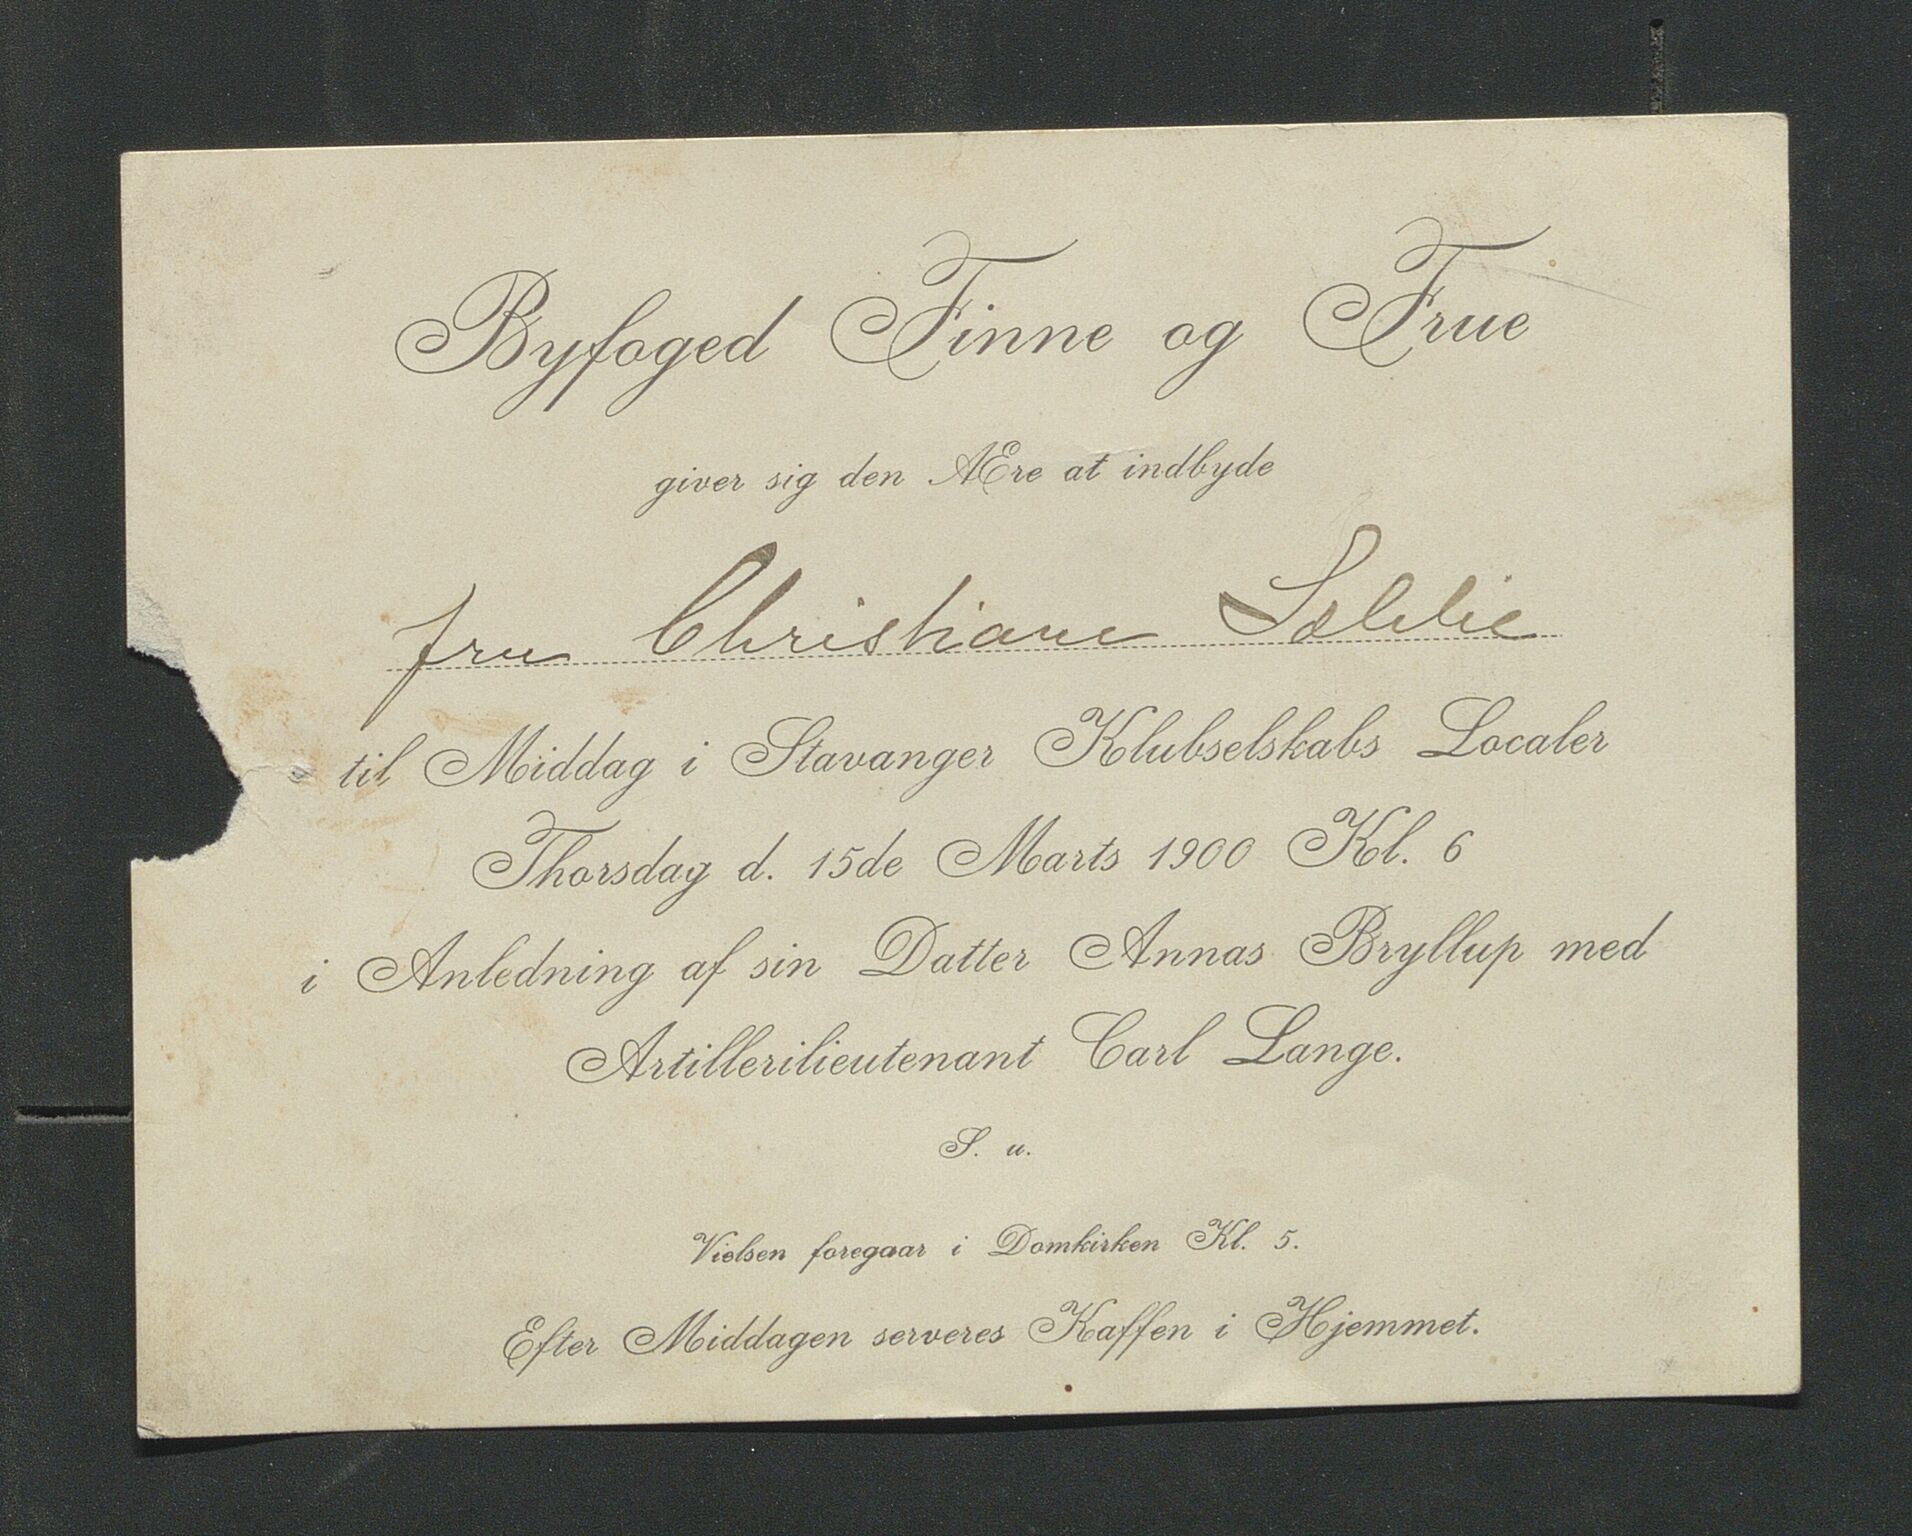 Byfoged Finne og Frue
giver sig den Ære at indbyde
fru Christiane
til Middag i Stavanger Klubselskabs Localer
Thorsdag d. 15de Marts 1900 Kl. 6
i Anledning af sin Datter Annas Bryllup med
Artillerilieutenant Carl Lange.
S. u.
Vielsen foregaar i Domkirken Kl. 5.
Efter Middagen serveres Kaffen i Hjemmet.